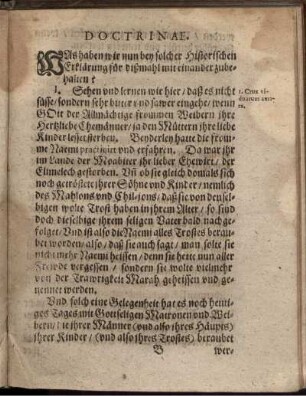 DOCTRINAE.
WAs haben wir nun bey solcher Historischen
Erklärung für dißmahl mit einander zube-
halten?
1. Sehen vnd lernen wir hier / daß es nicht
süsse / sondern sehr bitter vnd sawer eingehe / wenn
GOtt der Allmächtige frommen Weibern ihre
Hertzliebe Ehemänner / ja den Müttern ihre liebe
Kinder lesset sterben. Beyderley hatte die from-
me Naemi practiciret vnd erfahren. Da war ihr
im Lande der Moabiter ihr lieber Ehewirt / der
Elimelech gestorben. Vñ ob sie gleich domals sich
noch getröstet ihrer Söhne vnd Kinder / nemlich
des Mahlons vnd Chilions / daß sie von densel-
bigen wolte Trost haben in ihrem Alter / so sind
doch dieselbige ihrem seligen Vater bald nachge-
folget: Vnd ist also die Naemi alles Trostes berau-
bet worden / also / daß sie auch sagt / man solte sie
nicht mehr Naemi heissen / denn sie hette nun aller
Frewde vergessen / sondern sie wolte vielmehr
von der Trawrigkeit Marah geheissen vnd ge-
nennet werden.
Vnd solch eine Gelegenheit hat es noch heuti-
ges Tages mit Gottseligen Matronen vnd Wei-
bern / die ihrer Männer (vnd also ihres Häupts)
ihrer Kinder / (vnd also ihres Trostes) beraubet
B
wer-
1. Crux vi-
duarum ama-
ra.